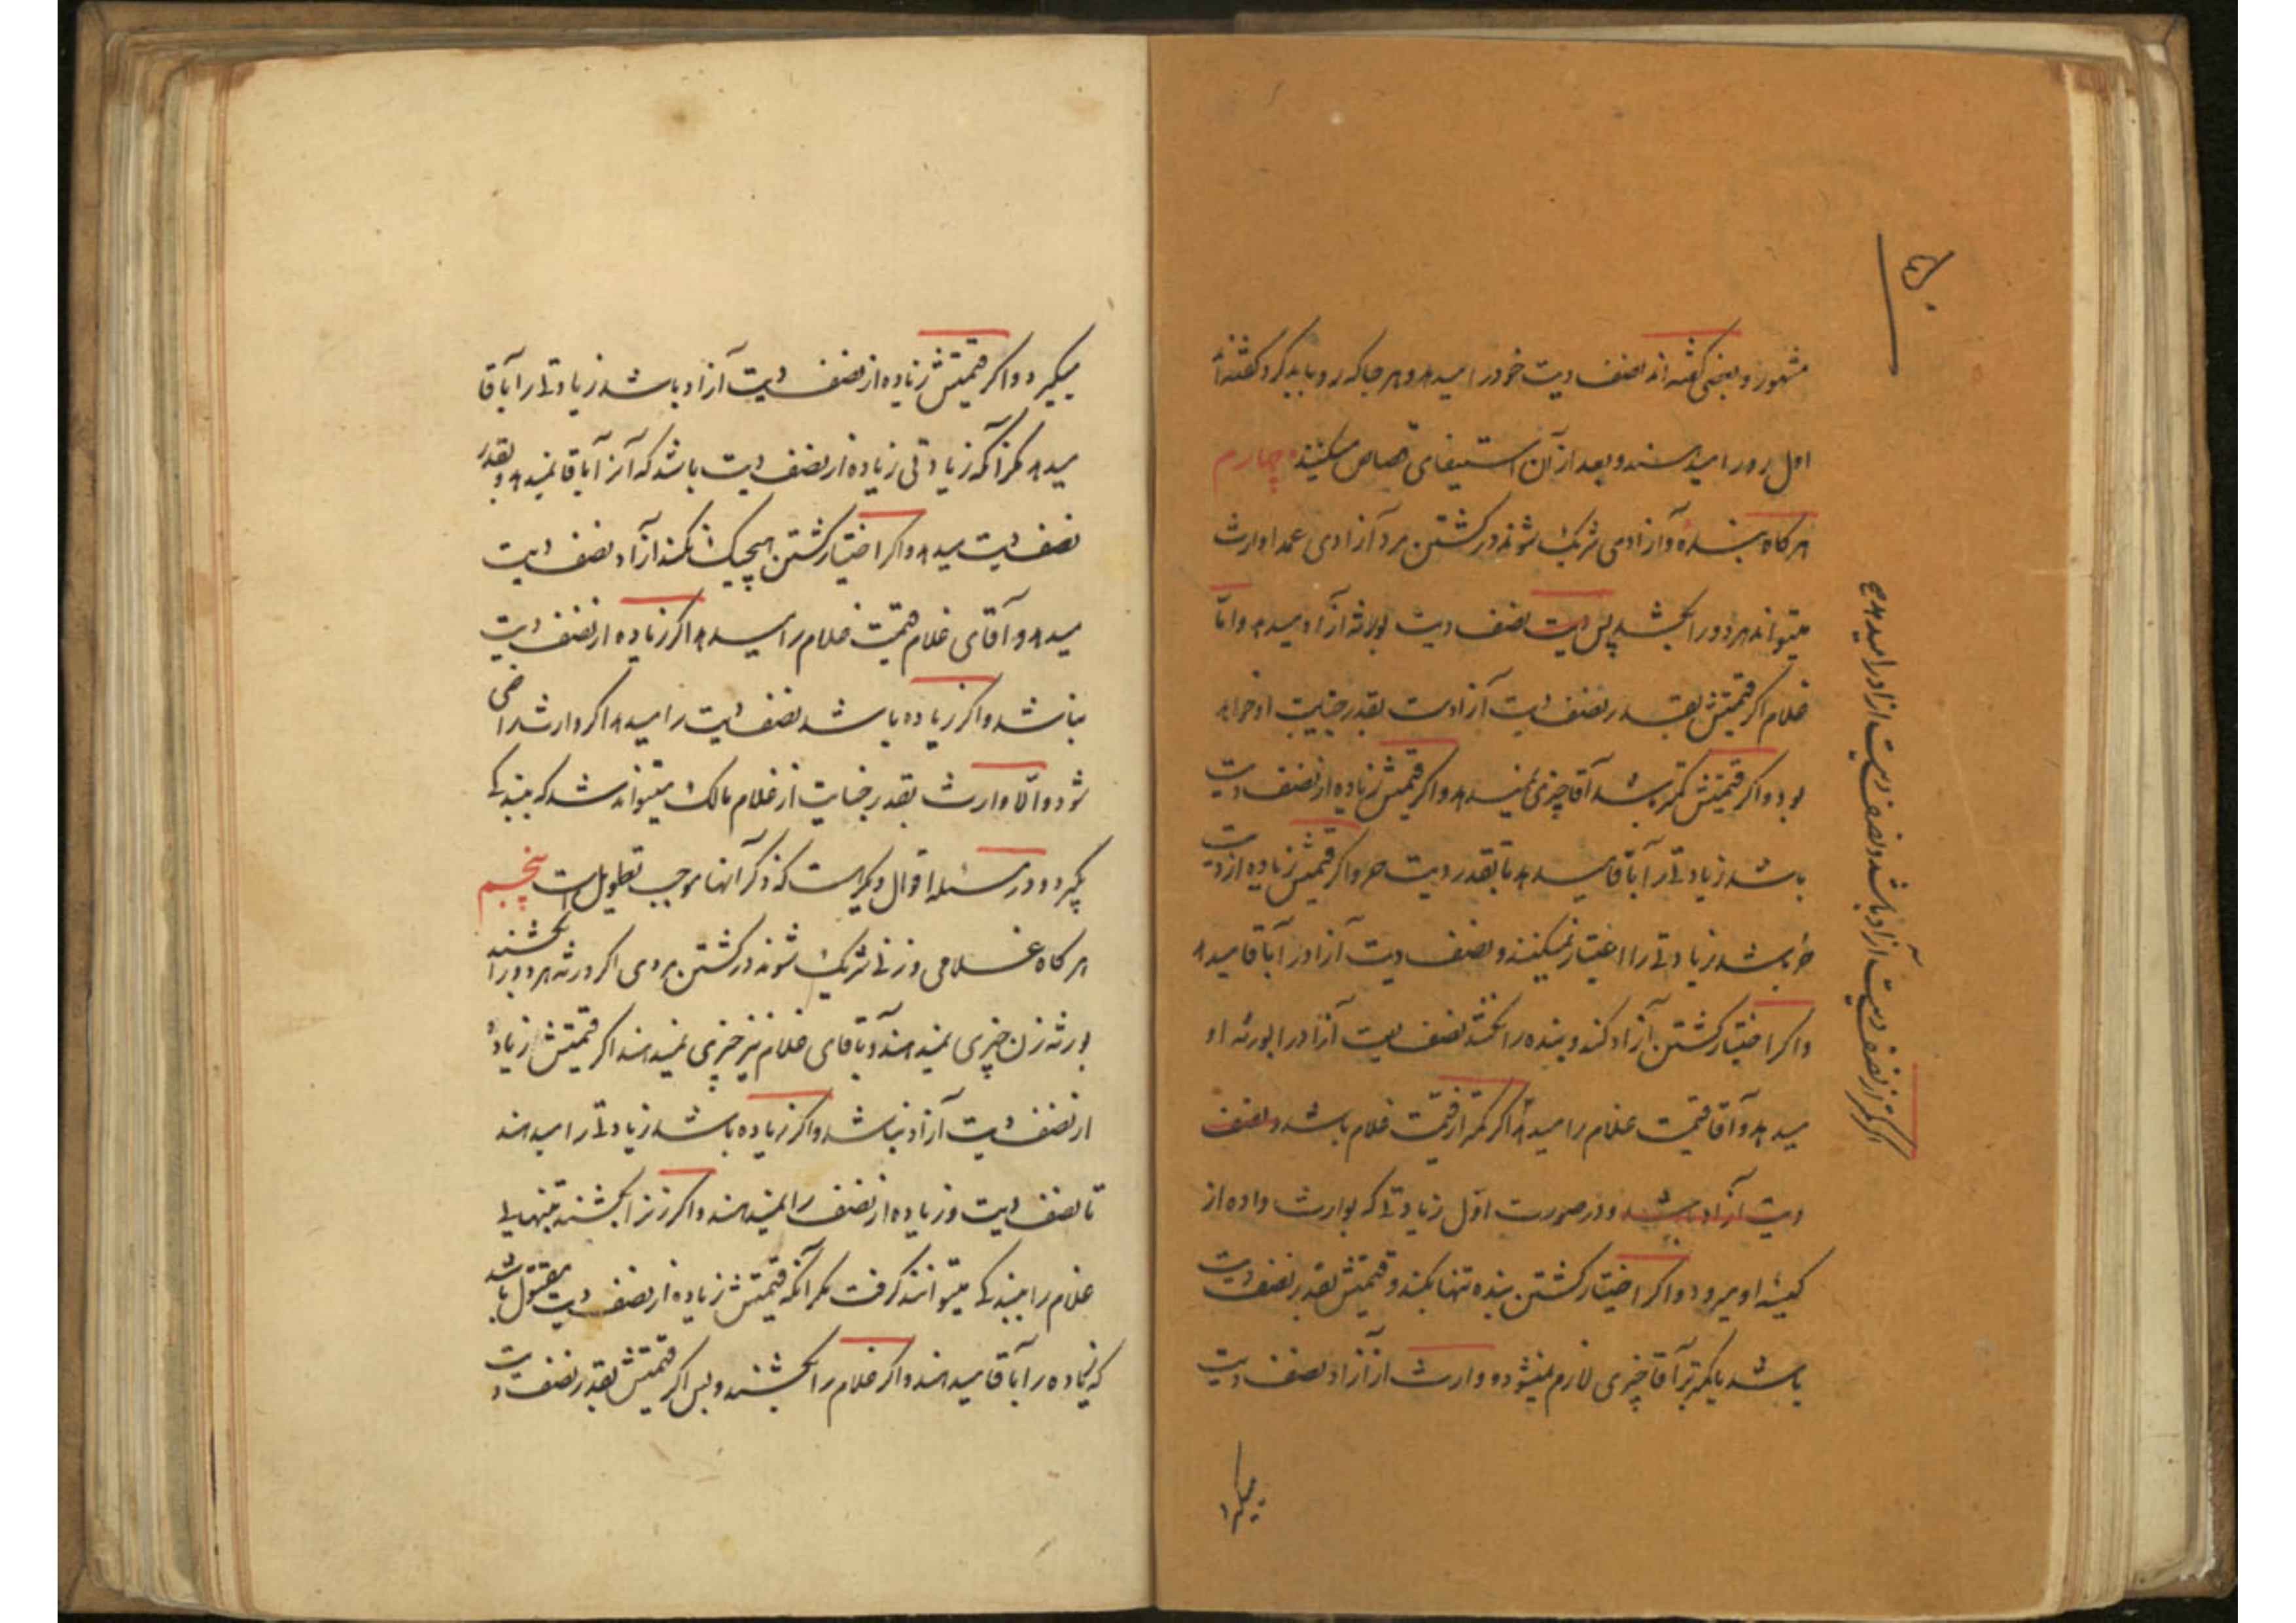 مشهور و بعضی گفته‌اند نصف دیت خود را میدهد و هر جا که رد باید کرد گفته‌اند
اول رد را میدهند و بعد از آن استیفای قصاص میکنند چهارم
هر گاه بندهٔ و آزادی شریک شوند در کشتن مرد آزادی عمدا وارث
میتواند هر دو را بکشد پس دیت نصف دیت بورثه آزاد میدهد و اما
غلام اگر قیمتش بقدر نصف دیت آزادست بقدر جنایت او خواهد
بود و اگر قیمتش کمتر باشد آقا چیزی نمیدهد و اگر قیمتش زیاده از نصف دیت
باشد زیادتی را بآقا میدهد تا بقدر دیت حر و اگر قیمتش زیاده از دیت
حر باشد زیادتی را اعتبار نمیکنند و نصف دیت آزاد را بآقا میدهد
و اگر اختیار کشتن آزاد کند و بنده را نکشد نصف دیت آزاد را بورثه او
میدهد و آقا قیمت غلام را میدهد اگر کمتر از قیمت غلام باشد و نصف
دیت آزاد باشد و در صورت اول زیادتی که بوارث داده از
کیسه او میرود و اگر اختیار کشتن بنده تنها بکند و قیمتش بقدر نصف دیت
باشد یا کمتر بر آقا چیزی لازم نمیشود و وارث از آزاد نصف دیت
میگیرد
اگر کمتر از نصف دیت آزاد باشد و نصف دیت آزاد را میدهد
میگیرد و اگر قیمتش زیاده از نصف دیت آزاد باشد زیادتی را بآقا
میدهد مگر آنکه زیادتی زیاده از نصف دیت باشد که آنرا بآقا نمیدهد و بقدر
نصف دیت میدهد و اگر اختیار کشتن هیچیک نکند آزاد نصف دیت
میدهد و آقای غلام قیمت غلام را میدهد اگر زیاده از نصف دیت
نباشد و اگر زیاده باشد نصف دیت را میدهد اگر وارث راضی
شود و الا وارث بقدر جنایت از غلام مالک میتواند شد که ببندگی
بگیرد و در مسئله اقوال دیگر هست که ذکر آنها موجب تطویل است پنجم
هر گاه غلامی و زنی شریک شوند در کشتن مردی اگر ورثه هر دو را بکشند
بورثه زن چیزی نمیدهند و بآقای غلام نیز چیزی نمیدهند اگر قیمتش زیاده
از نصف دیت آزاد نباشد و اگر زیاده باشد زیادتی را میدهند
تا نصف دیت و زیاده از نصف را نمیدهند و اگر زن را بکشند بتنهایی
غلام را ببندگی میتوانند گرفت مگر آنکه قیمتش زیاده از نصف دیت مقتول باشد
که زیاده را بآقا میدهند و اگر غلام را بکشند و بس اگر قیمتش بقدر نصف دیت